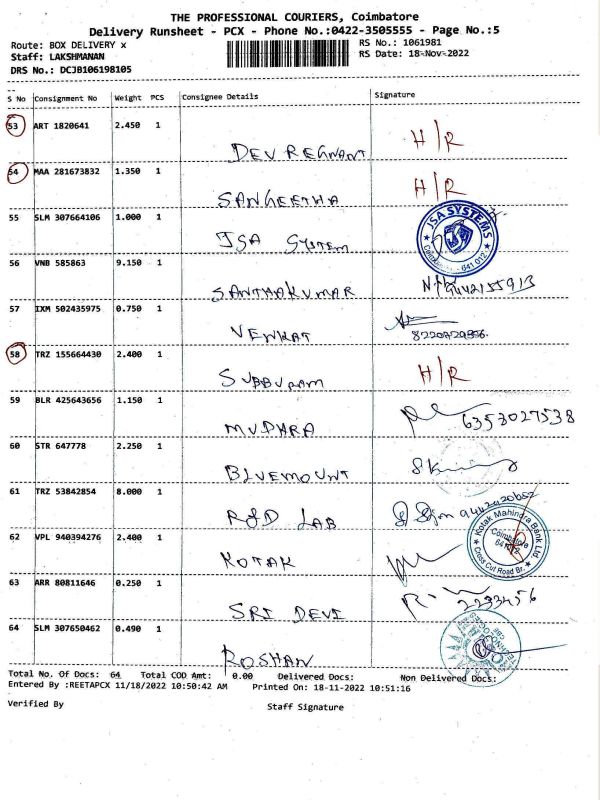 THE PROFESSIONAL COURIERS, Coimbatore
Delivery Runsheet - PCX - Phone No.:0422-3505555 - Page No.:5
Route: BOX DELIVERY x RS No.: 1061981
Staff: LAKSHMANAN RS Date: 18-Nov-2022
DRS No.: DCJB106198105
S No Consignment No Weight PCS Consignee Details Signature
53 ART 1820641 2.450 1 H/R
DEV REGNANT
54 MAA 281673832 1.350 1 H/R
SANGEETHA
55 SLM 307664106 1.000 1 JSA SYSTEMS
JSA SYSTEM 641 012
56 VNB 585863 9.150 1
SANTHAKUMAR
57 IXM 502435975 0.750 1
VENKAT
58 TRZ 155664430 2.400 1 H/R
SUBBURAM
59 BLR 425643656 1.150 1 6353027538
MUDHRA
60 STR 647778 2.250 1
BLUEMOUNT
61 TRZ 53842854 8.000 1
R&D LAB
62 VPL 940394276 2.400 1 Kotak Mahindra Bank Ltd
KOTAK Coimbatore Cross Cut Road Br.
63 ARR 80811646 0.250 1 2233456
SRI DEVI
64 SLM 307650462 0.490 1
ROSHAN
Total No. Of Docs: 64 Total COD Amt: 0.00 Delivered Docs: Non Delivered Docs:
Entered By :REETAPCX 11/18/2022 10:50:42 AM Printed On: 18-11-2022 10:51:16
Verified By Staff Signature